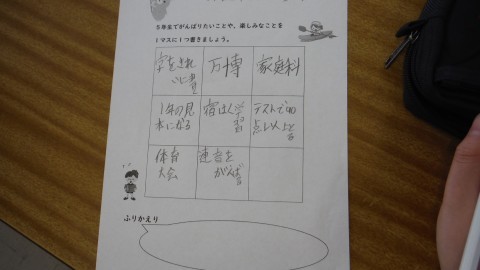 5年生でがんばりたいことや、楽しみなことを
1マスに1つ書きましょう。
字をきれ
いに書く
万博
家庭科
1年の見
本になる
宿はく学
習
テストで90
点以上とる
体育
大会
連合を
がんばる
ふりかえり